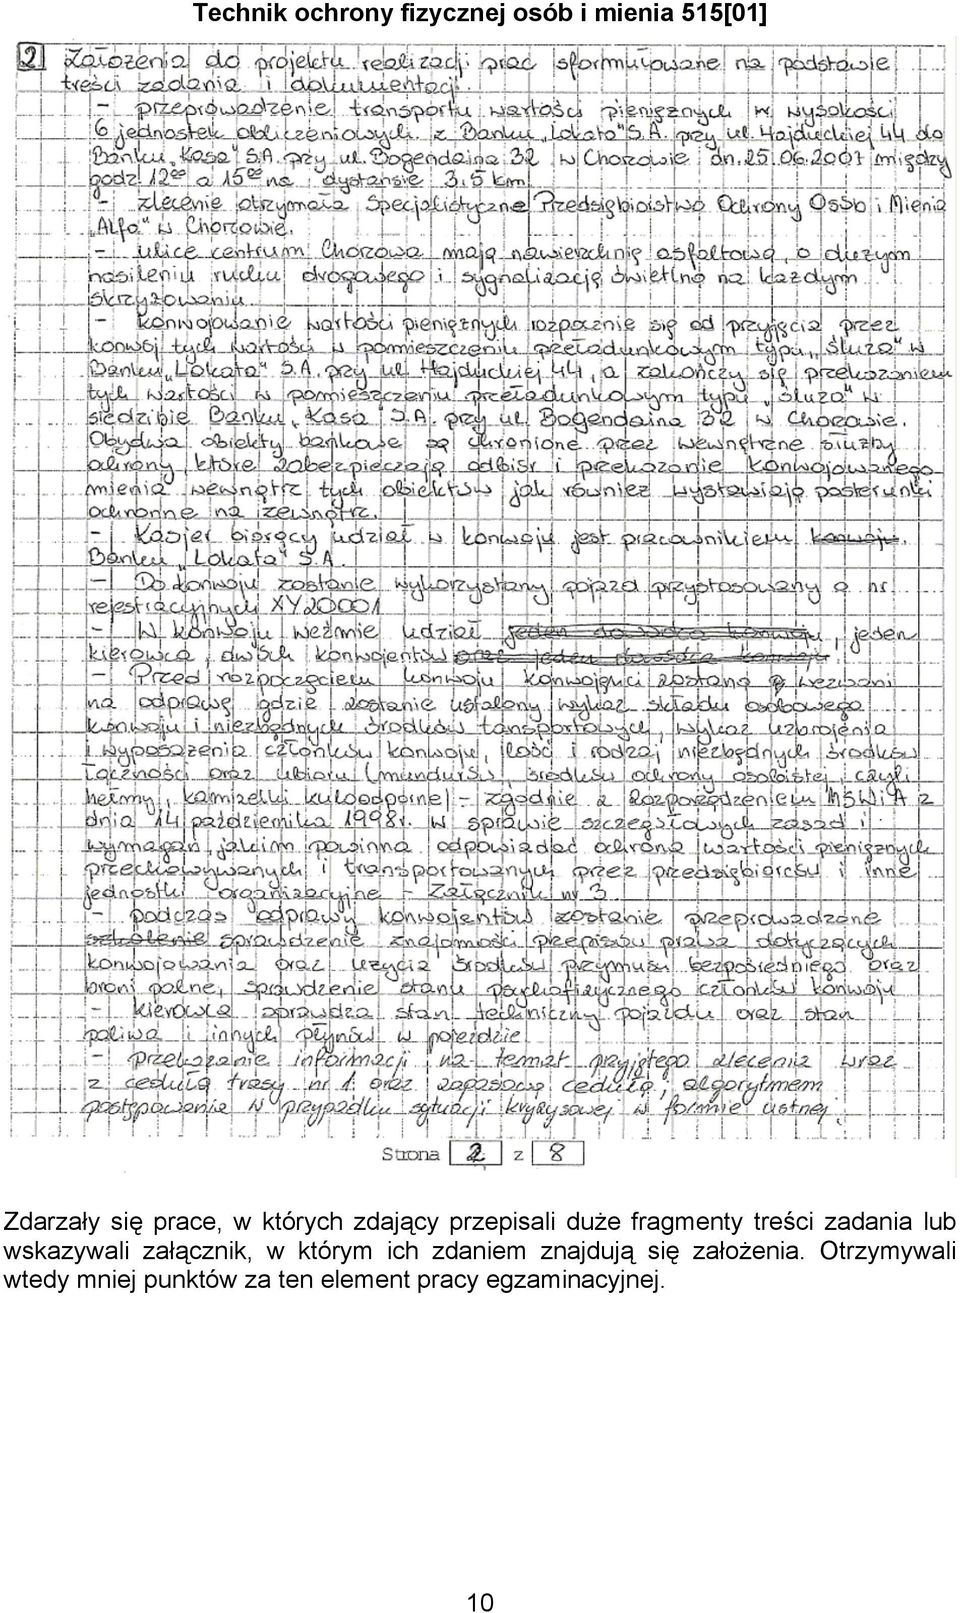 Technik ochrony fizycznej osób i mienia 515[01]
2 Założenia do projektu realizacji prac sformułowane na podstawie
treści zadania i dokumentacji.
- przeprowadzenie transportu wartości pieniężnych w wysokości
6 jednostek obliczeniowych z Banku „Lokata" S.A. przy ul. Hajduckiej 44 do
Banku „Kasa" S.A. przy ul. Bogendaina 32 w Chorzowie dn. 25.06.2007 między
godz 12ºº a 15ºº na dystansie 3,5 km.
- zlecenie otrzymała Specjalistyczne Przedsiębiorstwo Ochrony Osób i Mienia
„Alfa" w Chorzowie.
- ulice centrum Chorzowa mają nawierzchnię asfaltową, o dużym
nasileniu ruchu drogowego i sygnalizację świetlną na każdym
skrzyżowaniu.
- konwojowanie wartości pieniężnych rozpocznie się od przyjęcia przez
konwój tych wartości w pomieszczeniu przeładunkowym typu „śluza" w
Banku „Lokata" S.A. przy ul. Hajduckiej 44, a zakończy się przekazaniem
tych wartości w pomieszczeniu przeładunkowym typu „śluza" w
siedzibie Banku „Kasa" S.A. przy ul. Bogendaina 32 w Chorzowie.
Obydwa obiekty bankowe są chronione przez wewnętrzne służby
ochrony, które zabezpieczają odbiór i przekazanie konwojowanego
mienia wewnątrz tych obiektów jak również wystawiają posterunki
ochronne na zewnątrz.
- Kasjer biorący udział w konwoju jest pracownikiem konwoju.
Banku „Lokata" S.A.
- Do konwoju zostanie wykorzystany pojazd przystosowany o nr
rejestracyjnych XY20001
- W konwoju weźmie udział jeden dowódca konwoju, jeden
kierowca, dwóch konwojentów oraz jeden dowódca konwoju.
- Przed rozpoczęciem konwoju konwojenci zostaną wezwani
na odprawę gdzie zostanie ustalony wykaz składu osobowego
konwoju i niezbędnych środków tansportowych, wykaz uzbrojenia
i wyposażenia członków konwoju, ilość i rodzaj niezbędnych środków
łączności oraz ubioru (mundurów, środków ochrony osobistej, czyli
hełmy, kamizelki kuloodporne) - zgodnie z Rozporządzeniem MSWiA z
dnia 14 października 1998r. w sprawie szczegółowych zasad i
wymagań, jakim powinna odpowiadać ochrona wartości pieniężnych
przechowywanych i transportowanych przez przedsiębiorców i inne
jednostki organizacyjne - Załącznik nr 3.
- podczas odprawy konwojentów zostanie przeprowadzone
szkolenie sprawdzenie znajomości przepisów prawa dotyczących
konwojowania oraz użycia środków przymusu bezpośredniego oraz
broni palnej, sprawdzenie stanu psychofizycznego członków konwoju
- kierowca sprawdza stan techniczny pojazdu oraz stan
paliwa i innych płynów w pojeździe
- przekazanie informacji na temat przyjętego zlecenia wraz
z cedułą trasy nr 1 oraz zapasową cedułą, algorytmem
postępowania w przypadku sytuacji kryzysowej w formie ustnej.
Strona 2 z 8
Zdarzały się prace, w których zdający przepisali duże fragmenty treści zadania lub
wskazywali załącznik, w którym ich zdaniem znajdują się założenia. Otrzymywali
wtedy mniej punktów za ten element pracy egzaminacyjnej.
10